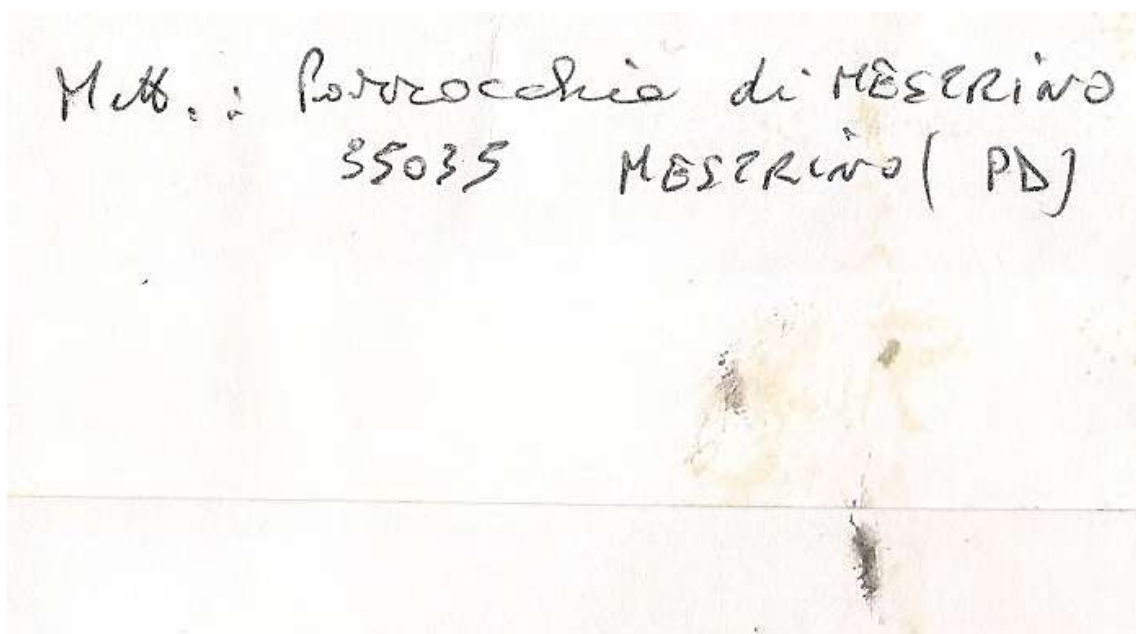 Mitt.: Parrocchia di MESTRINO
35035 MESTRINO (PD)